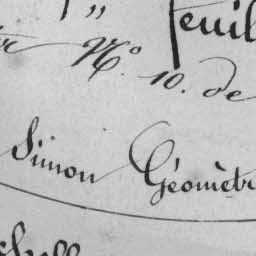 „ feuil
N.° 10. de
Simon Géomètr